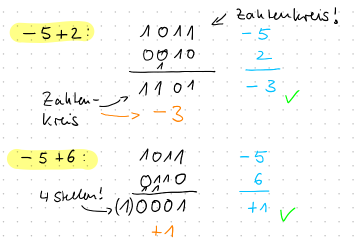 Zahlenkreis!
-5+2: 1011 -5
0010 2
1
1101 -3 ✓
Zahlen-
kreis -3
-5+6: 1011 -5
0110 6
1 1
4 Stellen! (1)0001 +1 ✓
+1